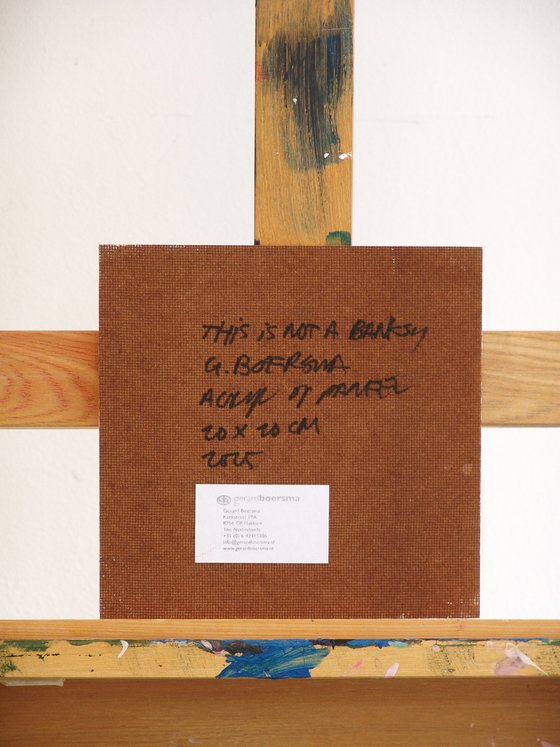 THIS IS NOT A BANKSY
G. BOERSMA
ACRYL OP PANEEL
20 X 20 CM
2025
gerardboersma
Gerard Boersma
The Netherlands
info@gerardboersma.nl
www.gerardboersma.nl